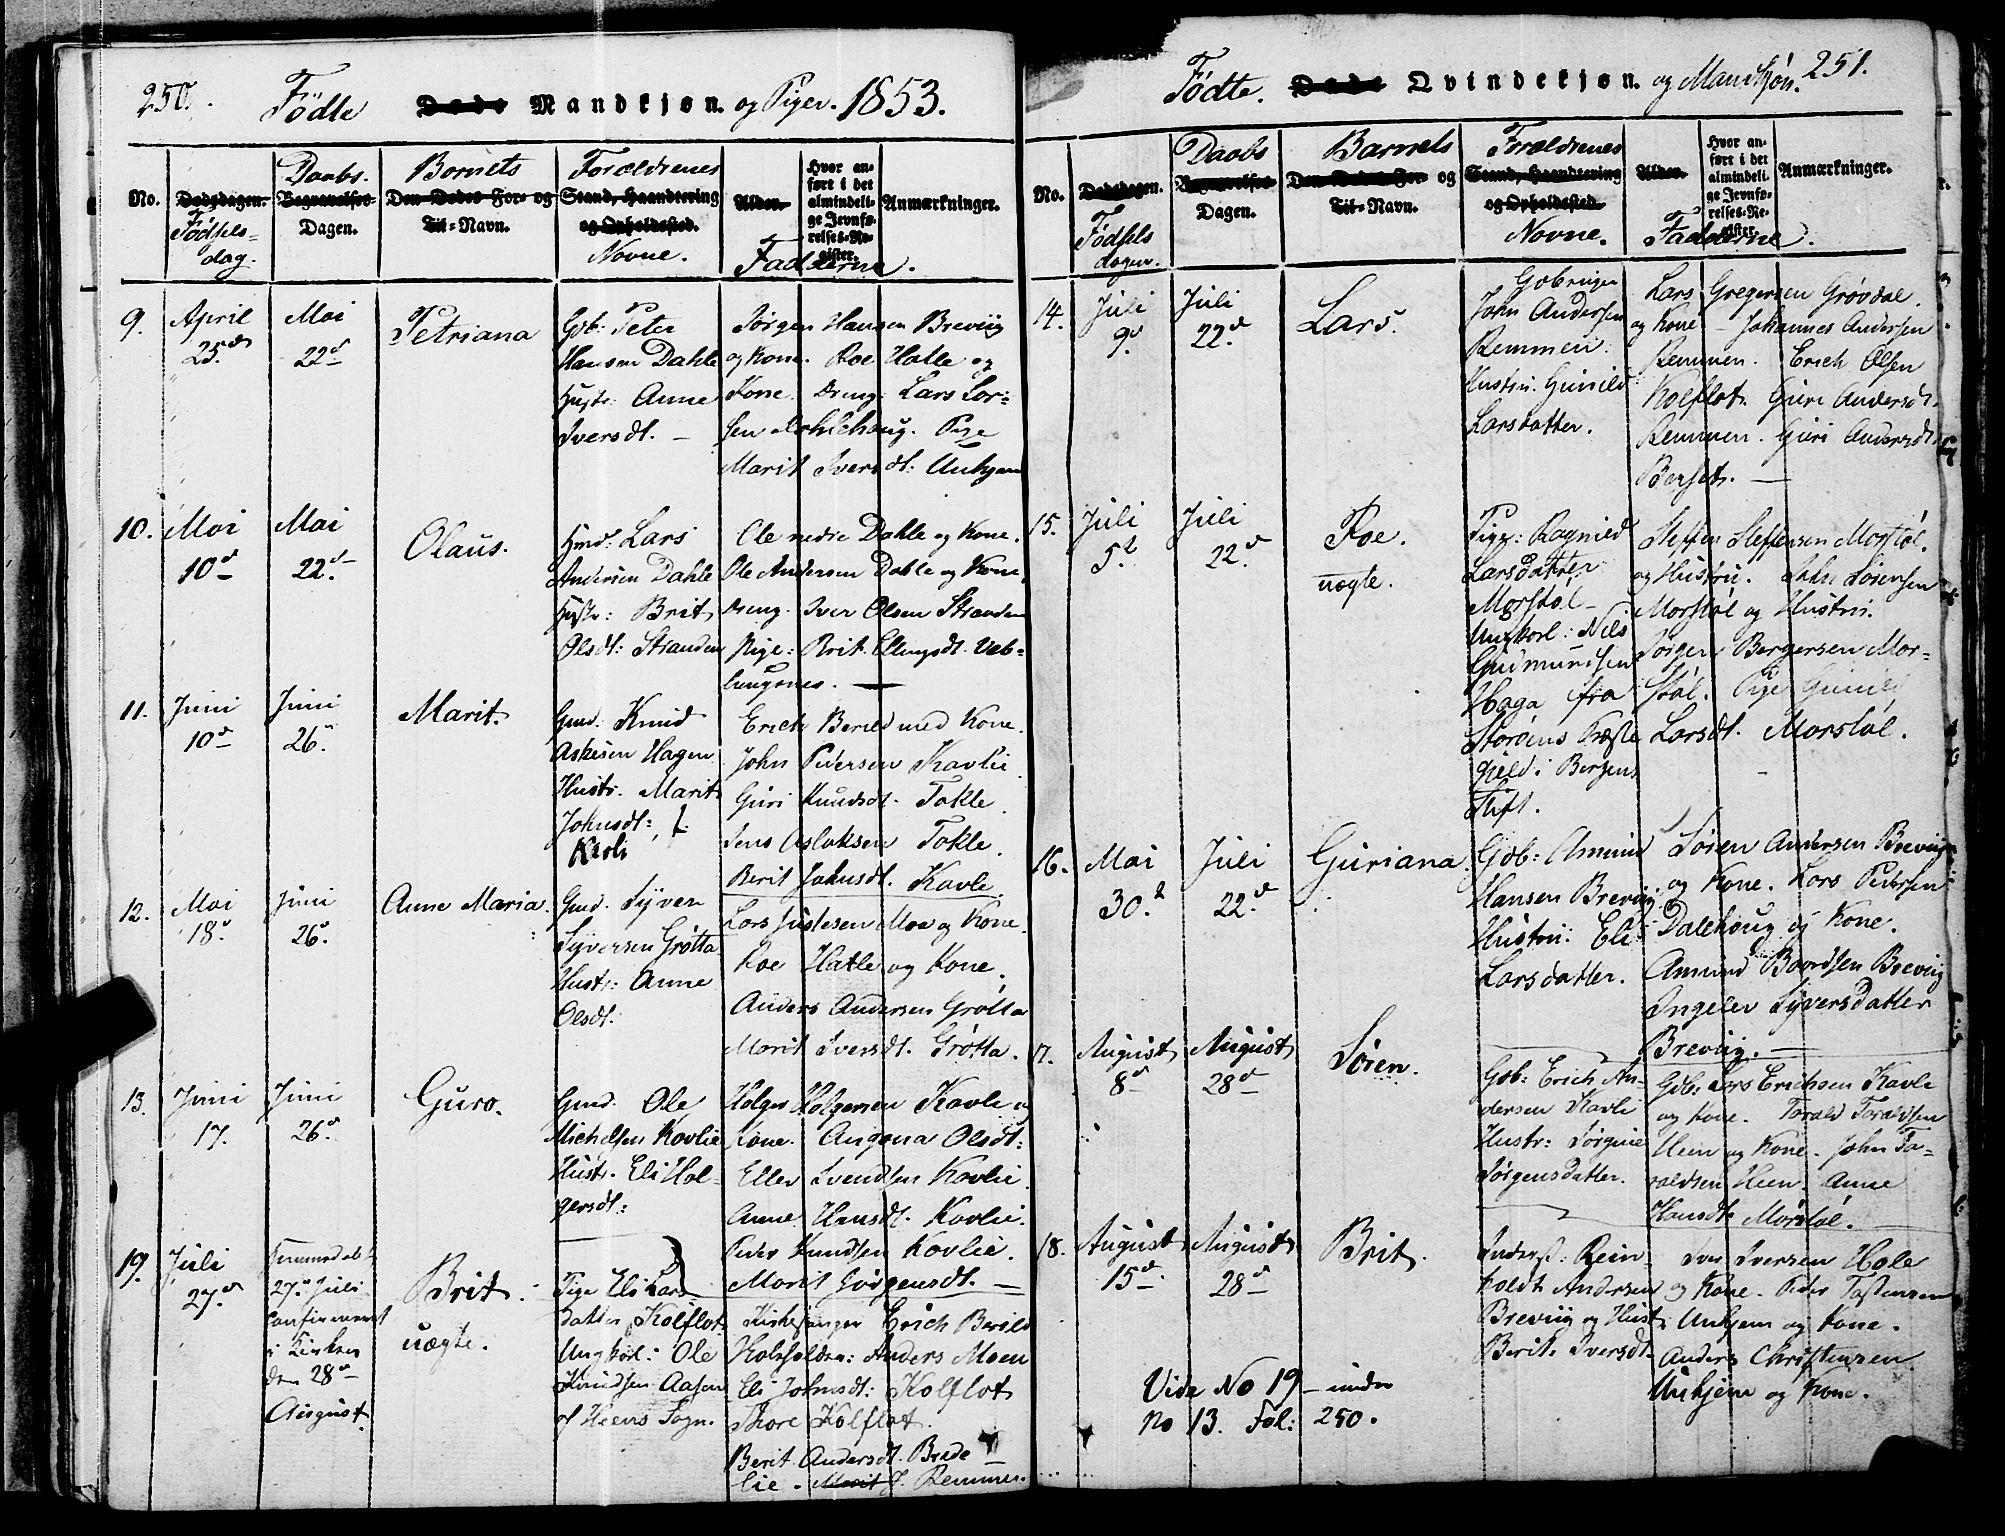 250.
Födte Døde Mandkjøn. og Piger. 1853.
No.
Dødsdagen. Fødsels-
dag.
Daabs.
Begravelses-
Dagen.
Barnets
Den Dødes For- og
Til-Navn.
Forældrenes
Stand, Haandtering
og Opholdssted.
Navne.
Alder.
Fadderne.
Hvor an-
ført i det
almindeli-
ge Jevnfø-
relses-Re-
gister.
Anmærkninger.
9.
April
25de
Mai
22d
Petriana
Gbr: Peter
Hansen Dahle
Hustr: Anne
Iversdt. –
Jørgen Hansen Breviig
og Kone. Roe Hatle og
Kone. Dreng: Lars Lar=
sen Dahlehaug. Pige
Marit Iversdt: Unhjem
10.
Mai
10d
Mai
22d
Olaus.
Hmd: Lars
Andersen Dahle
Hustr: Brit
Olsdt: Stranden
Ole nedre Dahle og Kone.
Ole Andersen Dahle og Kone
Dreng. Iver Olsen Stranden
Pige: Brit Ellingsdt. Veb=
lungsnes. —
11.
Juni
10d
Juni
26.
Marit.
Gmd: Knud
Aslesen Hagen
Hustr. Marit
Johnsdt:
Kavli
Erich Berild med Kone.
John Pedersen Kavlie
Guri Knudsdt. Tokle
Jens Aslaksen Tokle.
Berit Johnsdt. Kavli.
12.
Mai
18d
Juni
26d
Anne Maria.
Gmd. Syver
Syversen Grøtta
Hustr: Anne
Olsdt:
Lars Justesen Moe og Kone.
Roe Hatle og Kone.
Anders Andersen Grøtta
Marit Iversdt. Grøtta.
13.
Juni
17.
Juni
26d
Guro.
Gmd. Ole
Michelsen Kavlie
Hustr. Eli Hol-
gersdt:
Holger Holgersen Kavli og
Kone. Angona Olsdt:
Eller Svendsen Kavlie
Anne Hansdt. Kavlie.
Peder Knudsen Kavlie.
Marit Jörgensdt. —
19.
Juli
27d
27d Juli
confirmeret
i Kirken
den 28d
August.
Brit.
uægte.
Pige Eli Lars
datter Kolflot
Ungkarl: Ole
Knudsen Aasen
af Heens Sogn.
Kirkesanger Erich Berild
Anders Moen
Eli Johnsdt: Kolflot
Thore Kolflot.
Berit Andersdt. Brede
lie. Marit J. Remmen
Födte. Døde Qvindekjøn. og Mandkjøn. 251.
No.
Dødsdagen.
Födsels
dagen.
Daabs
Begravelses
Dagen.
Barnets
Den Dødes For- og
Til-Navn.
Forældrenes
Stand, Haandtering
og Opholdssted.
Navne.
Alder.
Fadderne.
Hvor an-
ført i det
almindeli-
ge Jevnfø-
relses-Re-
gister.
Anmærkninger.
14.
Juli
9d
Juli
22d
Lars.
John Andersen
Remmen.
Hustru. Gunild
Larsdatter.
Lars Gregersen Grøvdal.
og Kone – Johannes Andersen
Remmen. Erich Olsen
Kolflot. Guri Andersdt.
Remmen. Guri Andersdt
Berset. —
15.
Juli
5d
Juli
22d
Roe.
uægte.
Pige: Ragnild
Larsdatter
Morstøl
Ungkarl: Nils
Gudmundsen
Haga fra
Storøens Præste
gjeld i Bergens
Stift.
Steffen Steffensen Morstøl.
og Hustru. John Sörensen
Morstøl og Hustru.
Jørgen Bergersen Mor-
støl. Pige Gunild
Larsdt. Morstøl.
16.
Mai
30d
Juli
22d
Guriana.
Gbr: Amund
Hansen Breviig
Hustru: Eli
Larsdatter.
Sören Andersen Breviig
og Kone. Lars Pedersen
Dalehoug og Kone.
Amund Baardsen Breviig
Ingelev Syversdatter
Breviig. —
17.
August
8d
August
28d
Sören.
Gbr: Erich An-
dersen Kavli
Hustr: Jørgine
Jørgensdatter.
Gbr: Lars Erichsen Kavli
og Kone. Torald Toraldsen
Heen og Kone. John To-
raldsen Heen. Anne
Hansdt. Morstøl.
18.
August
15d
August
28d
Brit.
Inderst: Rein-
holdt Andersen
Breviig og Hust
Berit Iversdt.
Iver Iversen Hole
og Kone. Peder Tostensen
Unhjem og Kone.
Anders Christensen
Unhjem og Kone.
Vide No 19 – under
No 13. Fol: 250.